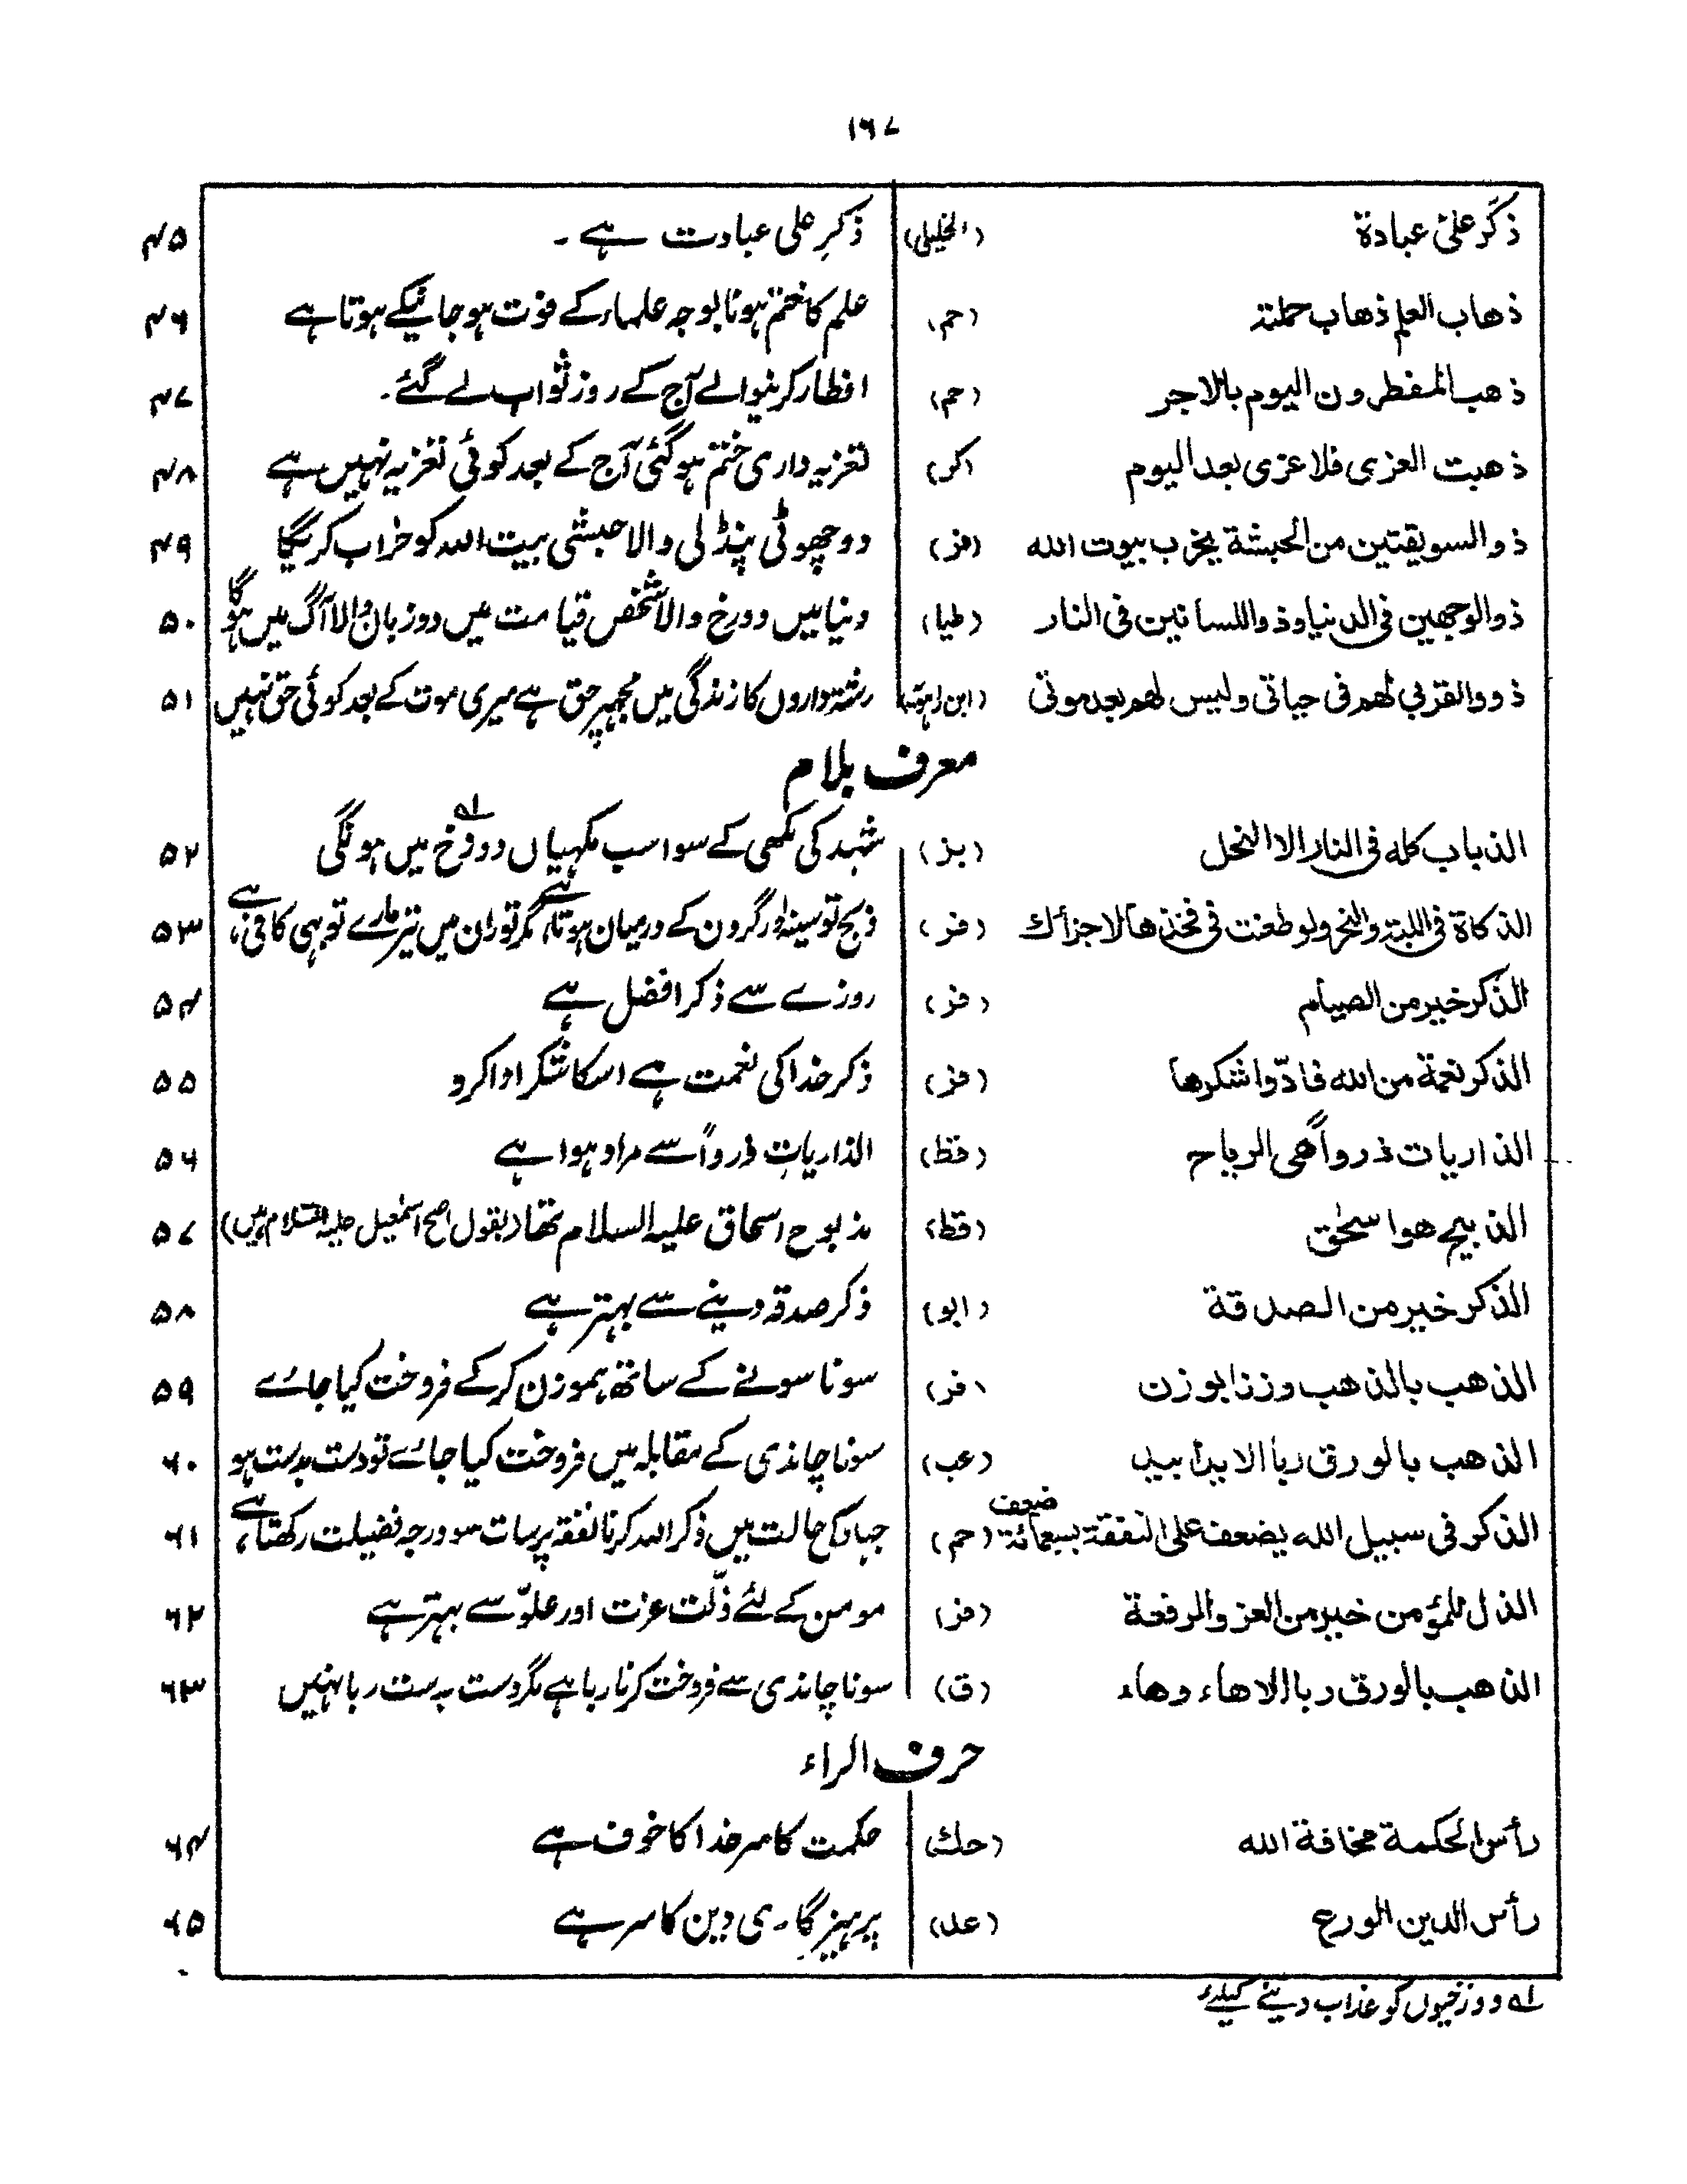 ۱۶۷
ذکر علی عبادة (الخلیلی) ذکرِ علی عبادت ہے ۔ ۴۵
ذهاب العلم ذهاب حملته (حم) علم کا ختم ہونا بوجہ علماء کے فوت ہوجانیکے ہوتا ہے ۴۶
ذهب المفطرون الیوم بالاجر (حم) افطار کرنیوالے آج کے روز ثواب لے گئے۔ ۴۷
ذهبت العزی فلا عزی بعد الیوم (کر) تعزیہ داری ختم ہوگئی آج کے بعد کوئی تعزیہ نہیں ہے ۴۸
ذو السویقتین من الحبشة یخرب بیوت الله (فز) دو چھوٹی پنڈلی والا حبشی بیت اللہ کو خراب کریگا ۴۹
ذو الوجهین فی الدنیا وذو اللسانین فی النار (طیا) دنیا میں دورخ والا شخص قیامت میں دو زبان والا آگ میں ہوگا ۵۰
ذوو القربی لهم فی حیاتی ولیس لهم بعد موتی (ابن راہویہ) رشتہ داروں کا زندگی میں مجھپر حق ہے میری موت کے بعد کوئی حق نہیں ۵۱
معرف بلام
الذباب کله فی النار الا النحل (بز) شہد کی مکھی کے سوا سب مکھیاں دوزخ میں ہونگی لہ ۵۲
الذکاة فی اللبة والنحر ولو طعنت فی فخذها لاجزأك (فز) ذبح تو سینہ اور گردن کے درمیان ہوتا ہے مگر تو ران میں تیز مارے تو بھی کافی ہے، ۵۳
الذکر خیر من الصیام (فز) روزے سے ذکر افضل ہے ۵۴
الذکر نعمة من الله فادّوا شکرها (فز) ذکر خدا کی نعمت ہے اسکا شکر ادا کرو ۵۵
الذاریات ذرواً هی الریاح (قط) الذاریات ذرواً سے مراد ہوا ہے ۵۶
الذبیح هو اسحٰق (قط) مذبوح اسحاق علیہ السلام تھا (بقول اصح اسمٰعیل علیہ السلام ہیں) ۵۷
الذکر خیر من الصدقة (ابو) ذکر صدقہ دینے سے بہتر ہے ۵۸
الذهب بالذهب وزنا بوزن (فر) سونا سونے کے ساتھ ہموزن کرکے فروخت کیا جائے ۵۹
الذهب بالورق ربا الا یدا بید (عب) سونا چاندی کے مقابلہ میں فروخت کیا جائے تو دست بدست ہو ۶۰
الذکر فی سبیل الله یضعف علی النفقة بسبعمائة ضعف (حم) جہاد کی حالت میں ذکر اللہ کرنا نفقہ پر سات سو درجہ فضیلت رکھتا ہے، ۶۱
الذل للمؤمن خیر من العز والرفعة (فز) مومن کے لئے ذلّت عزت اور علوّ سے بہتر ہے ۶۲
الذهب بالورق ربا الا هاء وهاء (ق) سونا چاندی سے فروخت کرنا ربا ہے مگر دست بدست ربا نہیں ۶۳
حرف الراء
رأس الحکمة مخافة الله (حك) حکمت کا سر خدا کا خوف ہے ۶۴
رأس الدین الورع (عد) پرہیزگاری دین کا سر ہے ۶۵
لہ دوزخیوں کو عذاب دینے کیلئے